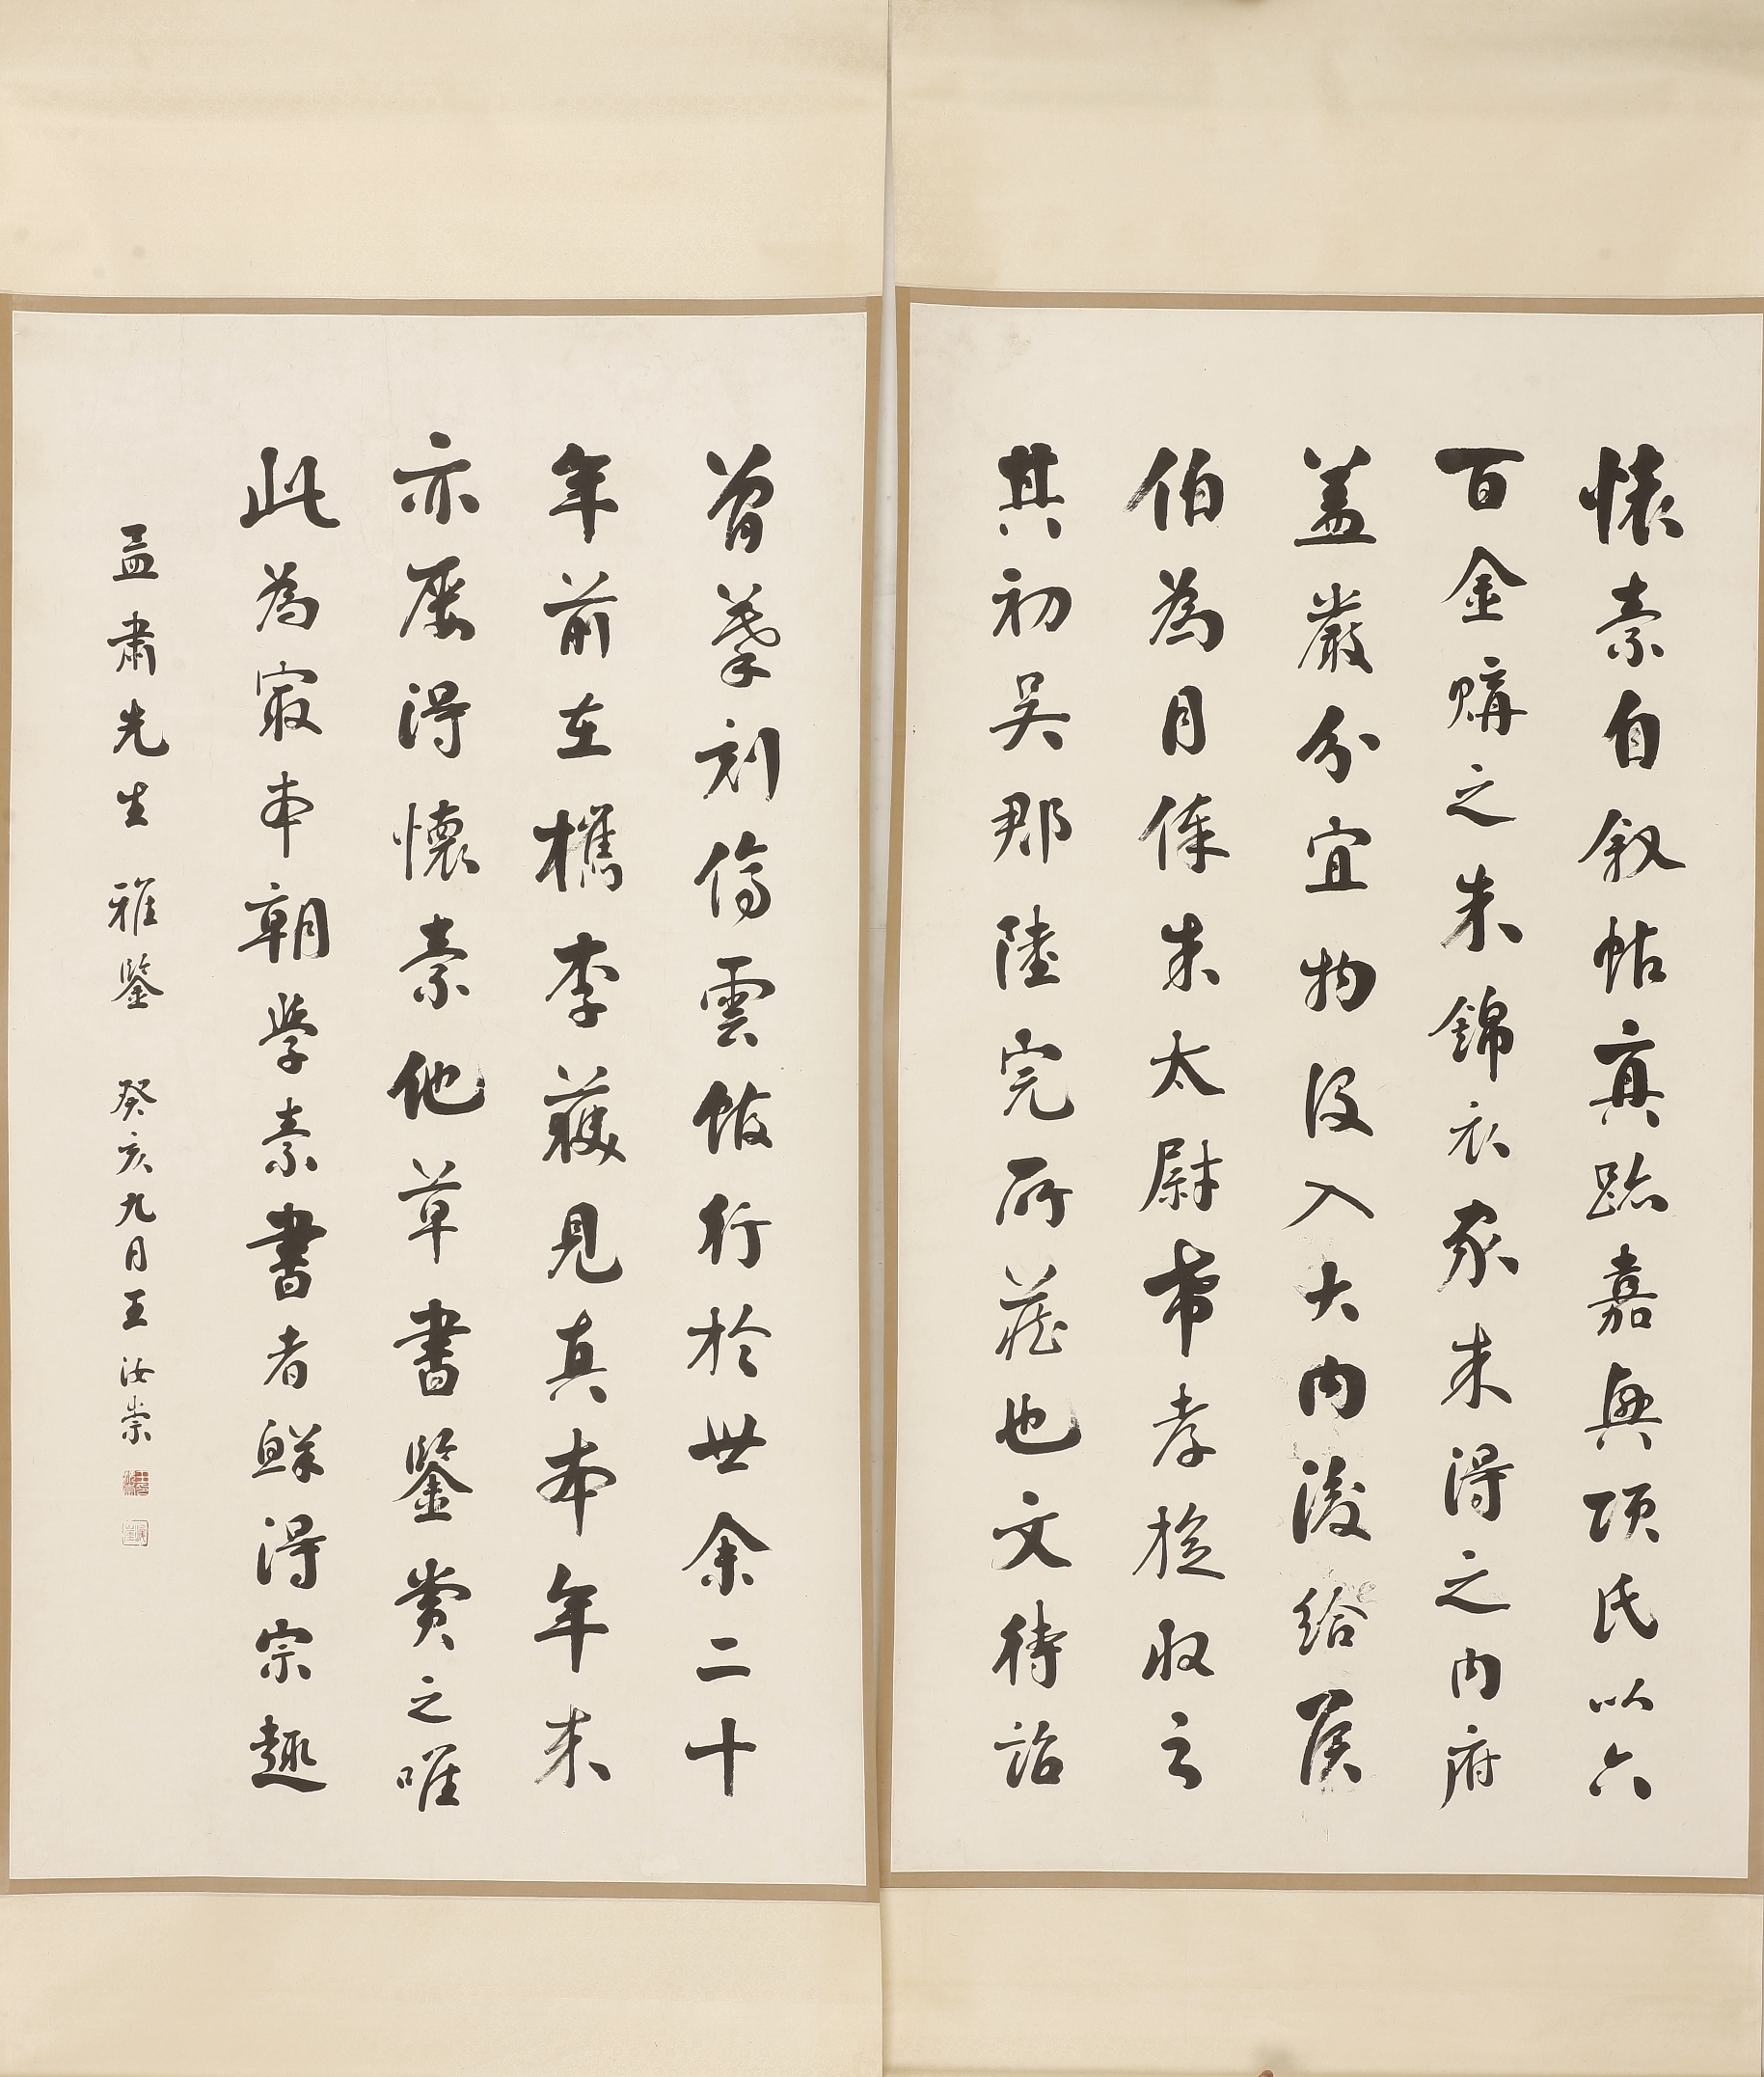 懷素自叙帖真跡嘉興項氏以六
百金購之朱錦衣家朱得之内府
盖嚴分宜物没入大内後給侯
伯為月俸朱太尉希孝旋收之
其初吳郡陸完所藏也文待詔
曾摹刻停雲館行於世余二十
年前在檇李獲見真本年来
亦屡得懷素他草書鑒賞之唯
此為寂本朝學素書者鮮得宗趣
孟肅先生雅鑒 癸亥九月王汝崇